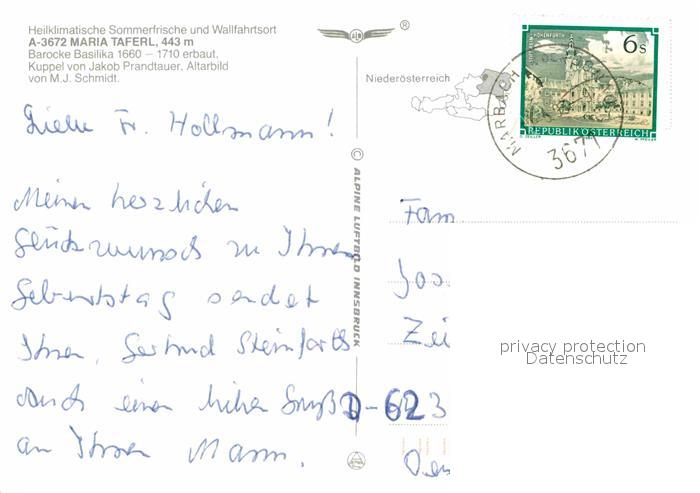 Heilklimatische Sommerfrische und Wallfahrtsort
A-3672 MARIA TAFERL, 443 m
Barocke Basilika 1660 – 1710 erbaut.
Kuppel von Jakob Prandtauer, Altarbild
von M.J. Schmidt.
®
Niederösterreich
6s
REPUBLIK ÖSTERREICH
MARBACH
3671
© ALPINE LUFTBILD INNSBRUCK
Liebe Fr. Hollmann!
Meinen herzlichen
Glückwunsch zu Ihrem
Geburtstag sendet
Ihnen, Gertrud Steinforth
auch einen lieben Gruß
an Ihren Mann.
Fam
Jos
Zei
D-62 3
privacy protection
Datenschutz